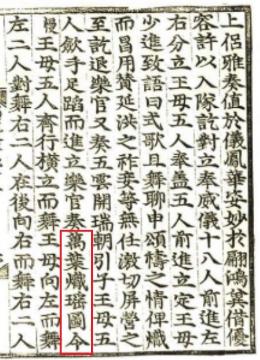 上侶雅奏值於儀鳳華姿妙扵翩鴻冀借優
容許以入隊訖對立奉威儀十八人前進左
右分立王母五人奉盖五人前進立定王母
少進致語曰式歌且舞聊申頌禱之情俾熾
而昌用贊延洪之祚妾等無任激切屛營之
至訖退樂官又奏五雲開瑞朝引子王母五
人歛手足蹈而進立樂官奏萬葉熾瑤圖令
慢王母五人齊行橫立而舞王母向左而舞
左二人對舞右二人在後向右而舞右二人